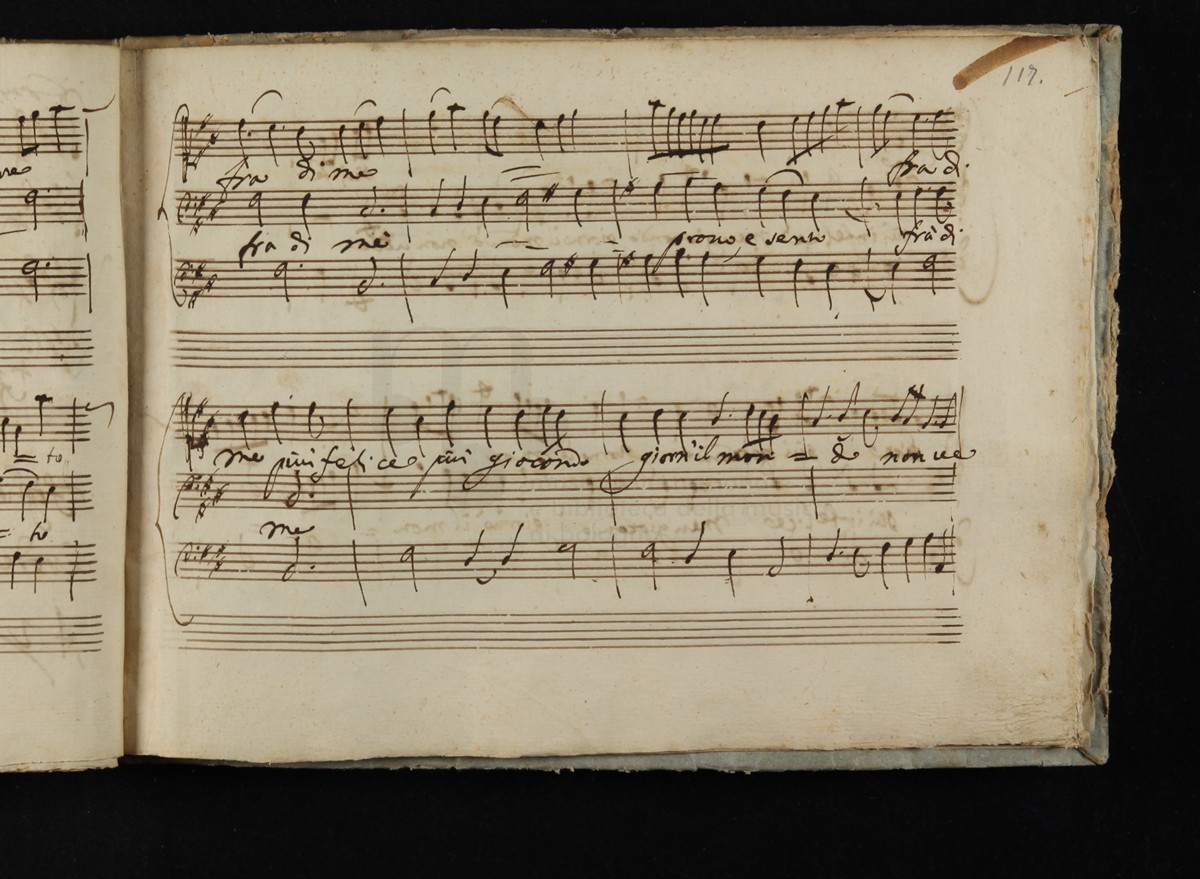 117.
fra di me fra di
fra di me provo e sento fra di
me più felice più giocondo giorn'il mon = do non ve
me
= to
= to